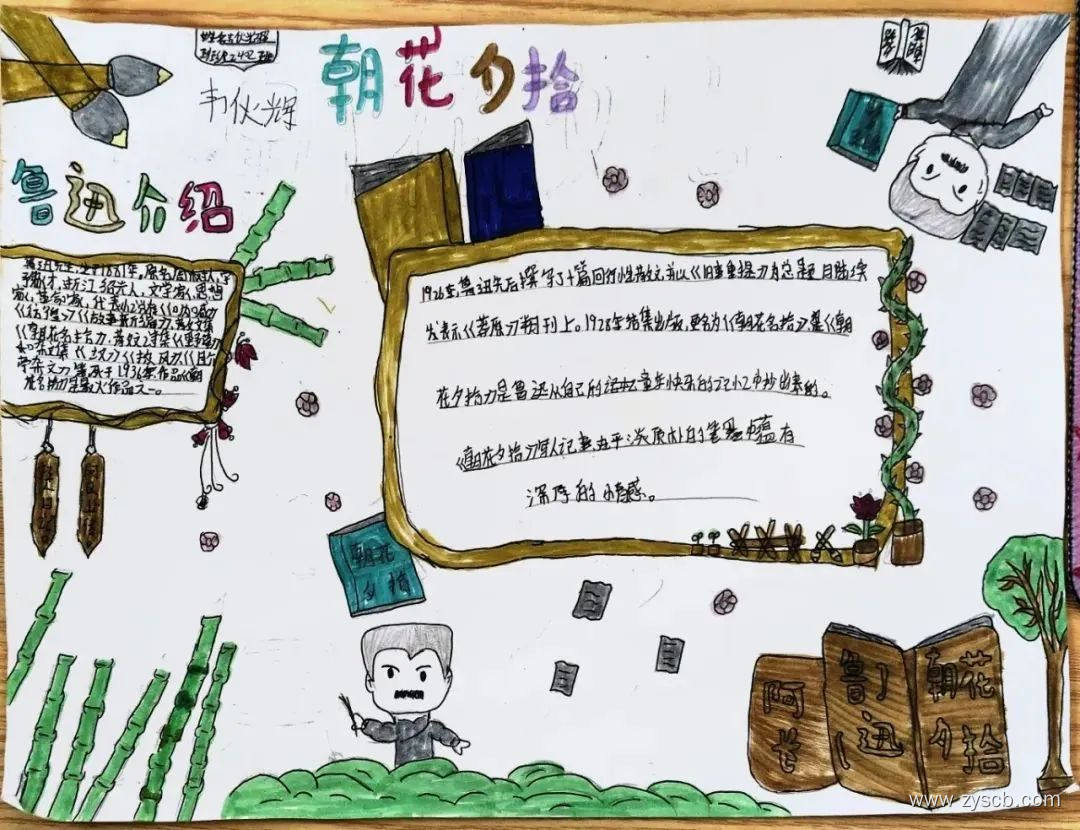 韦伙辉
朝花夕拾
鲁迅介绍
鲁迅先生,生于1881年。原名周
浙江绍兴人,文学家,思想
家,革命家,代表小说
《彷徨》《故事新编》
《朝花夕拾》,散文诗集《野草》
杂文集《坟》《热风》《且介
亭杂文》等于1936年,作品《朝
1926年,鲁迅先后撰写了十篇回忆性散文,并以《旧事重提》为总题目陆续
发表《莽原》期刊上。1928年结集出版,更名为《朝花夕拾》,是《朝
花夕拾》是鲁迅从自己的童年快乐的记忆中抄出来的。
《朝花夕拾》写人记事,在平淡质朴的笔墨中蕴有
深厚的情感。
朝花
夕拾
阿长
鲁迅
朝花
夕拾
www.zyscb.com